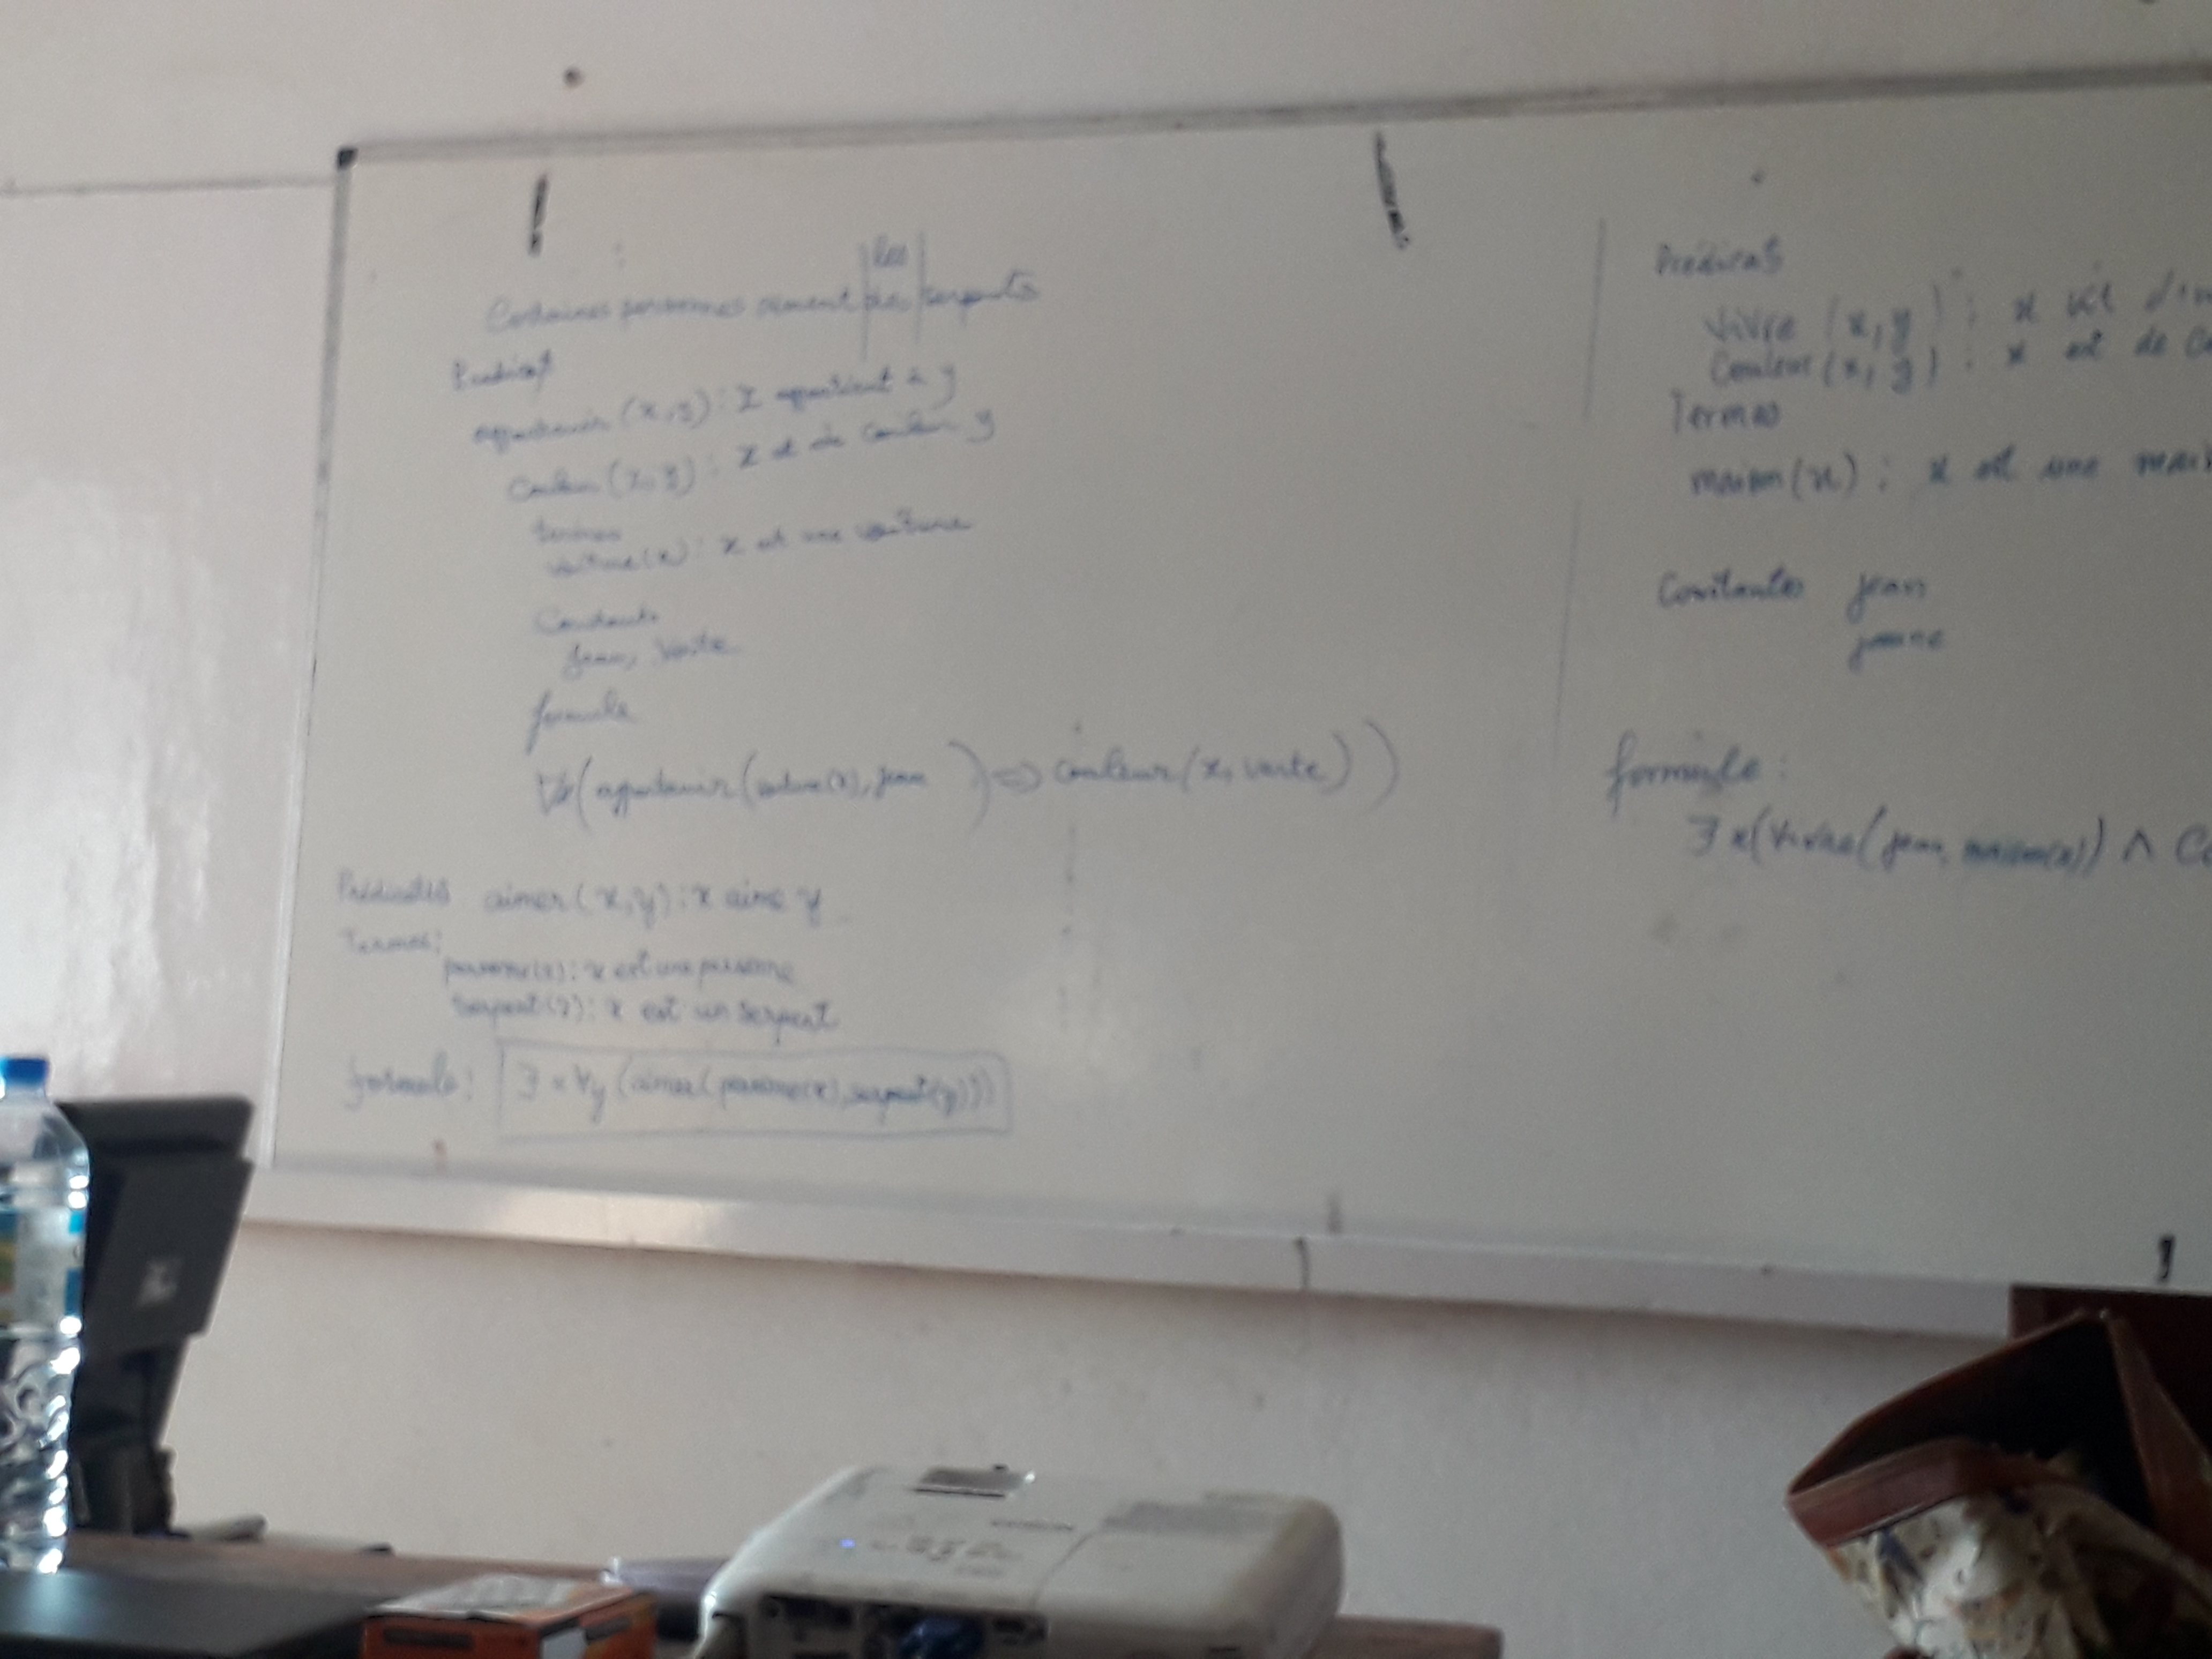 les
Certaines personnes aiment des serpents
Prédicat
appartenir (x, y) : x appartient à y
Couleur (x, y) : x est de couleur y
termes
voiture(x) : x est une voiture
Constante
Jean, Verte
formule
∀x(appartenir(voiture(x), jean) => couleur(x, verte))
Prédicats aimer(x, y) : x aime y
Termes :
personne(x) : x est une personne
serpent(x) : x est un serpent
formule : ∃x ∀y (aimer(personne(x), serpent(y)))
Prédicats
Vivre (x, y) : x vit
Couleur (x, y) : x est de
Termes
maison(x) : x est une
Constantes jean
jaune
formule :
∃x(Vivre(jean, maison(x)) ∧